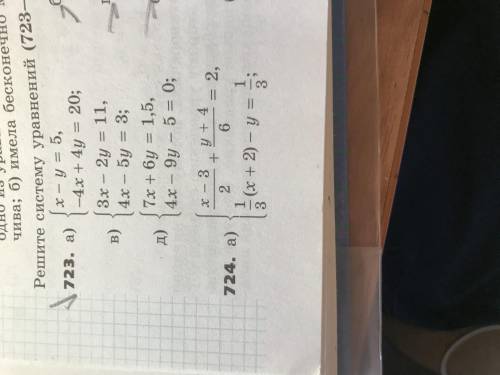 одно из
чива; б) имела бесконечно м
Решите систему уравнений (723—
723. а) { x − y = 5,
−4x + 4y = 20;
в) { 3x − 2y = 11,
4x − 5y = 3;
д) { 7x + 6y = 1,5,
4x − 9y − 5 = 0;
724. а) { (x − 3)/2 + (y + 4)/6 = 2,
1/3(x + 2) − y = 1/3;